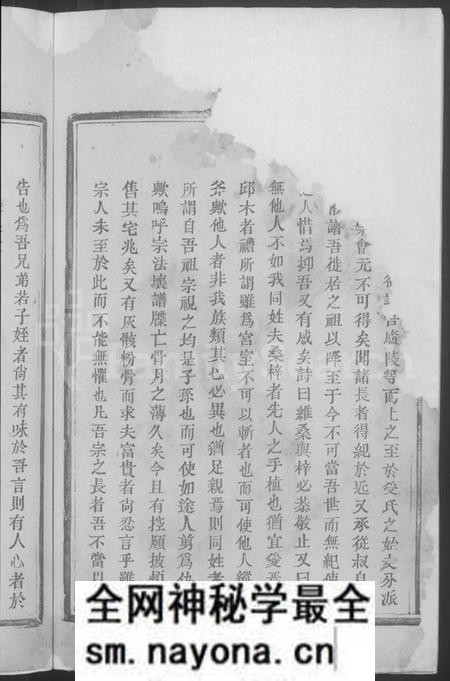 廬陵等而上之至於受氏之始支分派
會元不可得矣聞諸長者得紀於近又承從叔自
譜吾徙居之祖以降至于今不可當吾世而無紀使
人惜焉抑吾又有感矣詩曰維桑與梓必恭敬止又曰
無他人不如我同姓夫桑梓者先人之手植也猶宜愛焉
邱木者禮所謂雖爲宮室不可以斬者也而可使他人縱
斧歟他人者非我族類其心必異也猶足親焉則同姓者
所謂自吾祖宗視之均是子孫也而可使如途人剪爲仇
歟嗚呼宗法壞譜牒亡骨月之薄久矣今且有控願披
售其宅兆矣又有灰骸粉骨而求夫富貴者尙忍言乎雖
宗人未至於此而不能無懼也凡吾宗之長者吾不當以
告也爲吾兄弟若子姪者尙其有味於吾言則有人心者於
全网神秘学最全
sm.nayona.cn